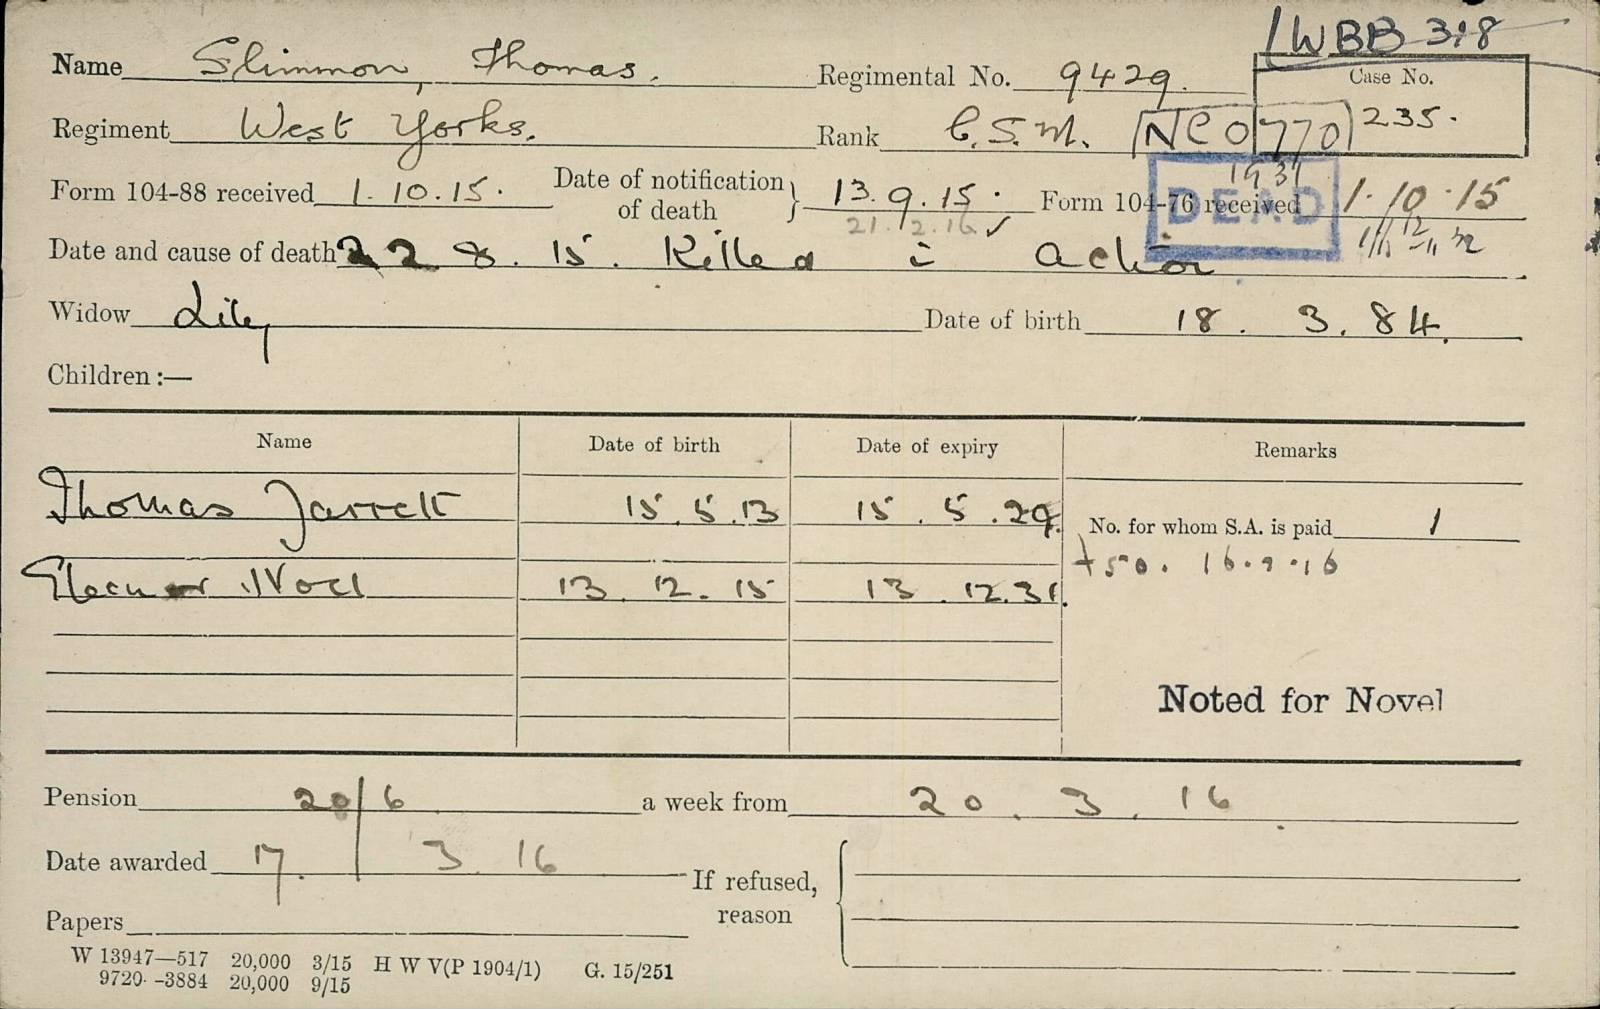 1WBB 318
Name Slimmon, Thomas. Regimental No. 9429. Case No.
Regiment West Yorks. Rank C.S.M. NCO 770 235.
1931
DEAD
Form 104-88 received 1.10.15. Date of notification of death } 13.9.15. Form 104-76 received 1.10.15
21.12.16 ✓
Date and cause of death 22 8. 15. Killed i action
Widow Lily Date of birth 18. 3. 84.
Children :—
Name Date of birth Date of expiry Remarks
Thomas Jarrett 15.5.13 15.5.29. No. for whom S.A. is paid 1
+50. 16.9.16
Eleanor Noel 13.12.15 13.12.31.
Noted for Novel
Pension 20/6 a week from 20.3.16
Date awarded 17. 3.16
If refused, reason
Papers
W 13947—517 20,000 3/15 H W V(P 1904/1) G. 15/251
9720--3884 20,000 9/15